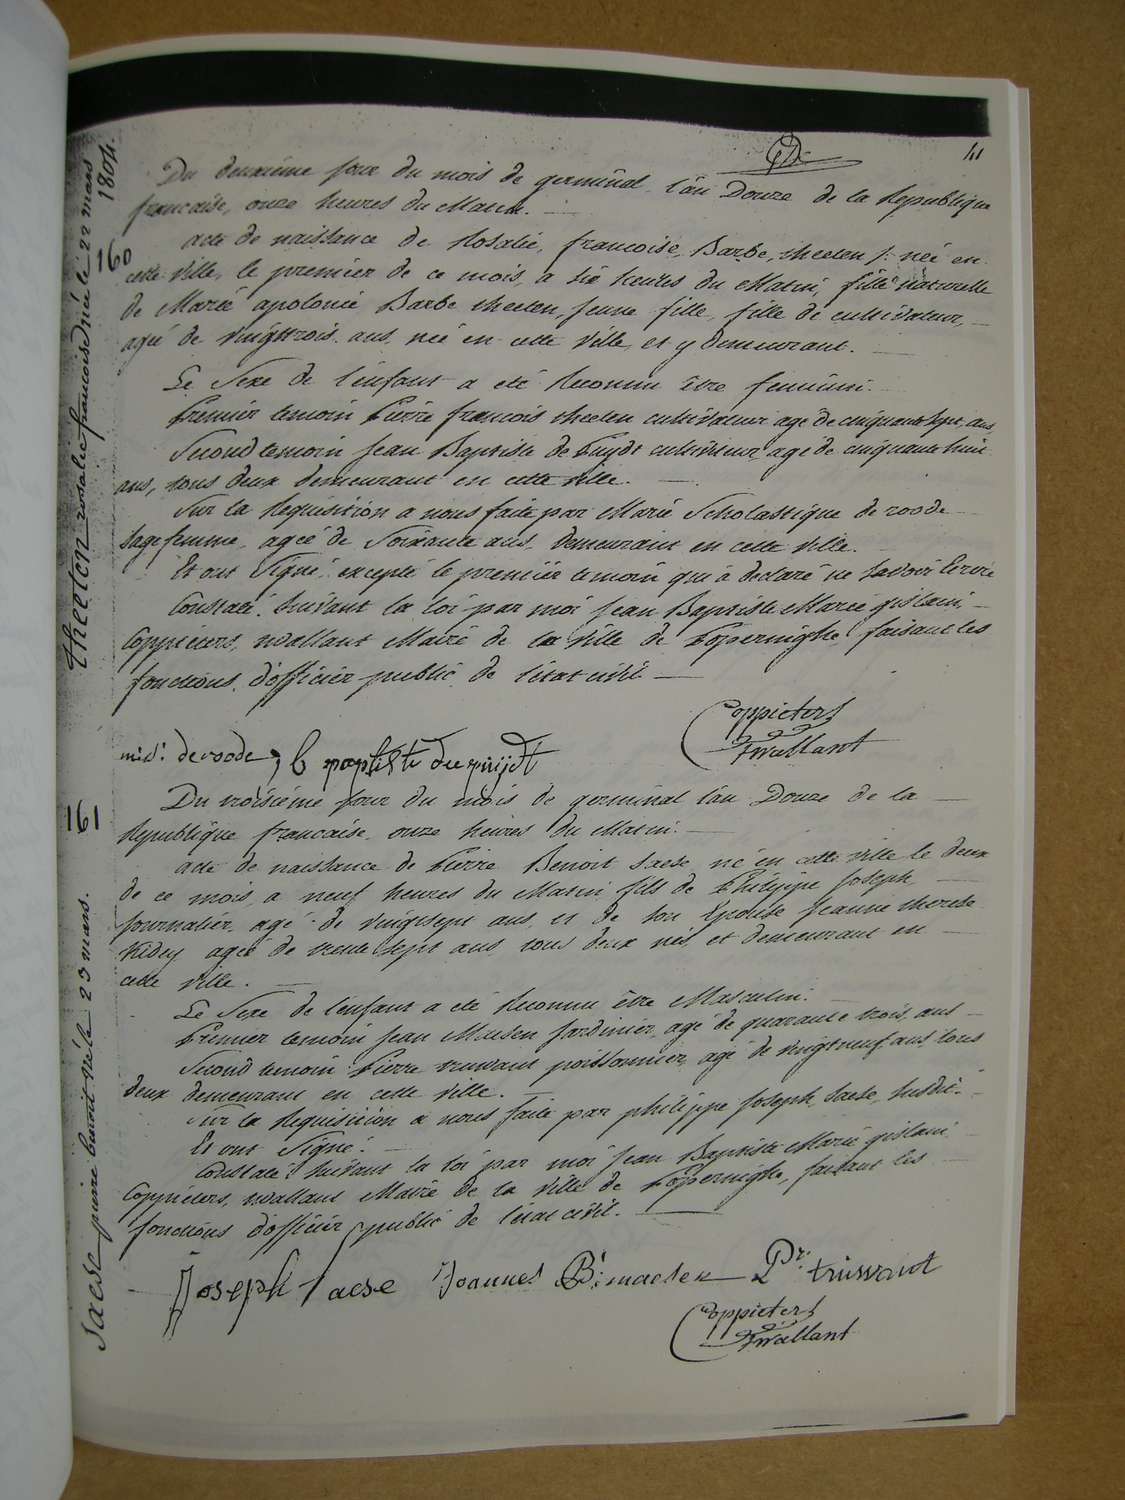 41
Du deuxième jour du mois de germinal l'an Douze de la Republique
francaise, onze heures du Matin.
acte de naissance de Rosalie, francoise, Barbe, theeten, née en
cette ville, le premier de ce mois, a six heures du Matin, fille naturelle
de Marie apolonie Barbe theeten, jeune fille, fille de cultivateur,
agé de vingttrois ans, née en cette ville, et y demeurant.
Le Sexe de l'enfant a eté Reconnu être feminin.
Premier temoin Pierre francois theeten cultivateur agé de cinquante sept ans
Second temoin jean Baptiste de Puydt cultivateur, agé de cinquante huit
ans, tous deux demeurant en cette ville.
Sur la Requisition a nous faite par Marie Scholastique de roode
Sage femme, agée de Soixante ans, demeurant en cette ville.
Et ont Signé, excepté le premier temoin qui a declaré ne Savoir Ecrire
Constaté, Suivant la loi par moi jean Baptiste Marie gislain,
Coppieters, wallant Maire de la ville de Poperinghe, faisant les
fonctions d'officier public de l'état civil
Coppieters
twallant
m: s: de roode, b paptiste de puijdt
Du troisième jour du mois de germinal l'an Douze de la
Republique francaise onze heures du Matin.
acte de naissance de Pierre Benoit Saese, né en cette ville le deux
de ce mois, a neuf heures du Matin, fils de Philippe Joseph
journalier, agé de vingtsept ans, et de Son Epouse Jeanne therese
Kidey agée de trente sept ans, tous deux nés et demeurant en
cette ville.
Le Sexe de l'enfant a eté Reconnu être Masculin.
Premier temoin jean Maesen jardinier, agé de quarante trois ans
Second temoin Pierre truwant poissonnier, agé de vingtneuf ans, tous
deux demeurant en cette ville.
Sur la Requisition a nous faite par philippe joseph Saese, susdit.
Et ont Signé.
Constaté Suivant la loi par moi jean Baptiste Marie gislain
Coppieters, wallant Maire de la ville de Poperinghe, faisant les
fonctions d'officier public de l'état civil.
Joseph Saese Joannes B: maesen Pr: truwant
Coppieters
twallant
160
theeten rosalie francoise née le 22 mars
1804.
161
Saese pierre benoit né le 23 mars.